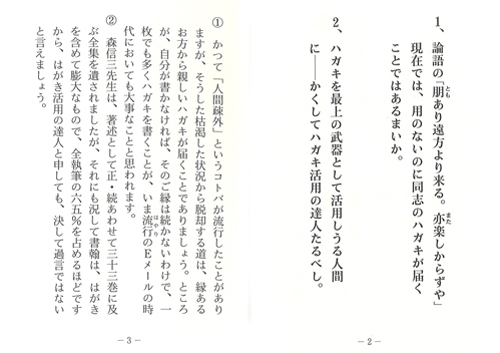 1、論語の「朋あり遠方より来る。亦楽しからずや」
とも
また
現在では、用のないのに同志のハガキが届く
ことではあるまいか。
2、ハガキを最上の武器として活用しうる人間
に――かくしてハガキ活用の達人たるべし。
－2－
① かつて「人間疎外」というコトバが流行したことがあり
ますが、そうした枯渇した状況から脱却する道は、縁ある
お方から親しいハガキが届くことでありましょう。ところ
が、自分が書かなければ、そのご縁は続かないわけで、一
枚でも多くハガキを書くことが、いま流行のEメールの時
はやり
代においても大事なことと思われます。
② 森信三先生は、著述として正・続あわせて三十三巻に及
ぶ全集を遺されましたが、それにも況して書翰は、はがき
を含めて膨大なもので、全執筆の六五％を占めるほどです
から、はがき活用の達人と申しても、決して過言ではない
と言えましょう。
－3－